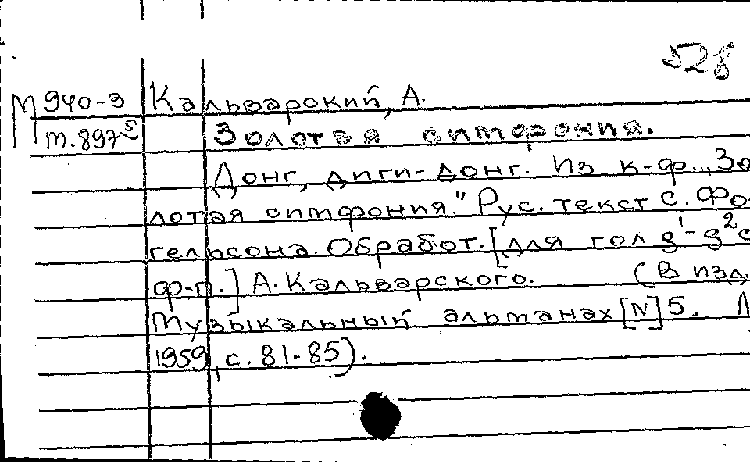 528
М 940-3 Кальварский, А.
т.897 Золотая симфония.
Донг, диги-донг. Из к-ф. „Зо
лотая симфония." Рус. текст С. Фо
гельсона. Обработ. [для гол. g¹-g² с
ф-п.] А. Кальварского. (В изд.
Музыкальный альманах [N] 5. Л
1959, с. 81-85).